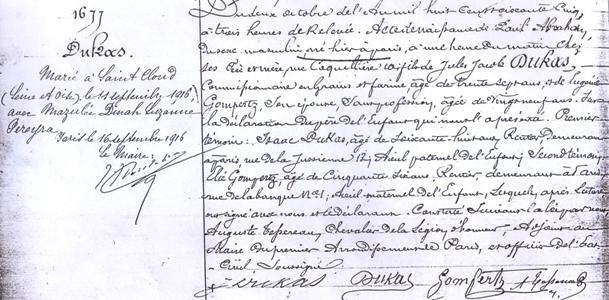 1677
Dukas
Marié à Saint Cloud
(Seine et Oise) le 11 septembre 1916,
avec Mazeltob Dinah Suzanne
Pereyra
Paris le 16 septembre 1916
Le Maire
Du deux octobre de l'an mil huit cent soixante cinq
à trois heures de Relevée. Acte de naissance de Paul Abraham
Du sexe masculin né hier à Paris, à une heure du matin chez
ses Père et mère, rue Coquillière fils de Jules Jacob Dukas,
Commissionnaire en Grains et farine âgé de trente sept ans, et de Eugénie
Gompertz, son épouse, sans profession, âgée de vingt neuf ans. Sur
la déclaration du père de l'Enfant qui nous l'a présenté. Premier
témoin: Isaac Dukas, âgé de soixante huit ans, Rentier, Demeurant
à Paris, rue de la Jussienne 12, aïeul paternel de l'Enfant; Second témoin
Elie Gompertz, âgé de Cinquante ans, Rentier, demeurant à Paris
rue de la banque N° 1, aïeul maternel de l'Enfant, Lesquels, après Lecture
ont signé avec nous et le déclarant. Constaté Suivant la loi, par nous
Auguste Tessereau, Chevalier de la Légion d'honneur, Adjoint au
Maire du premier Arrondissement de Paris, et officier de l'état
Civil, Soussigné
Dukas Gompertz